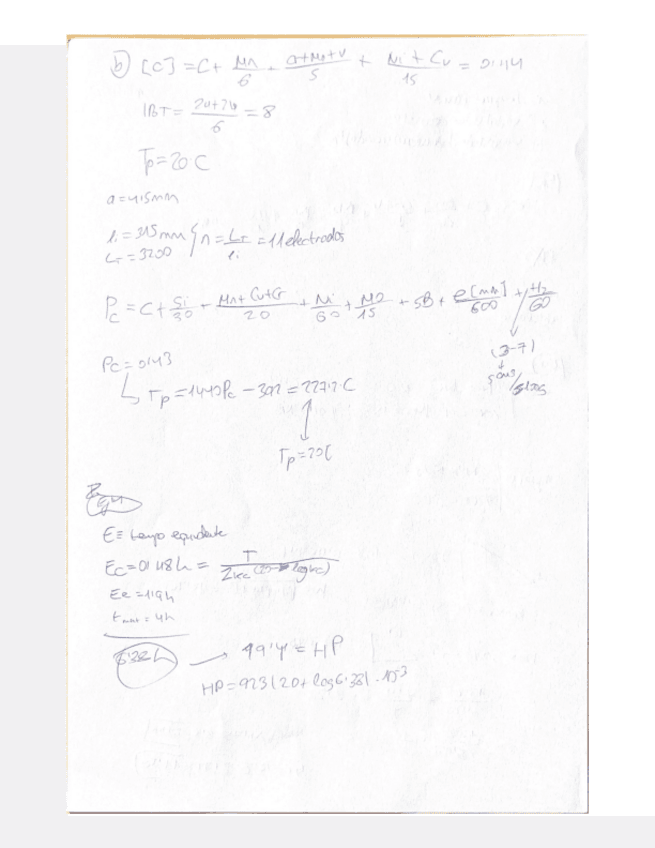 b) [C] = C + Mn/6 + Cr+Mo+V/5 + Ni+Cu/15 = 0'44
IBT = 20+20/6 = 8
Tp = 20ºC
a = 4'5mm
li = 315mm
LT = 3200 } n = LT/li = 11 electrodos
Pc = C + Si/30 + Mn+Cu+Cr/20 + Ni/60 + Mo/15 + 5B + e[mm]/600 + H2/60
(3-7)
Pc = 0'43
Tp = 1440Pc - 392 = 227'2ºC
Tp = 20C
E ≡ tiempo equivalente
Ec = 0'48h = T/2'3Kc(20 - logKc)
Ee = 1'19h
tmax = 4h
6'38h → 19'4 = HP
HP = 923(20 + log6'38)·10-3